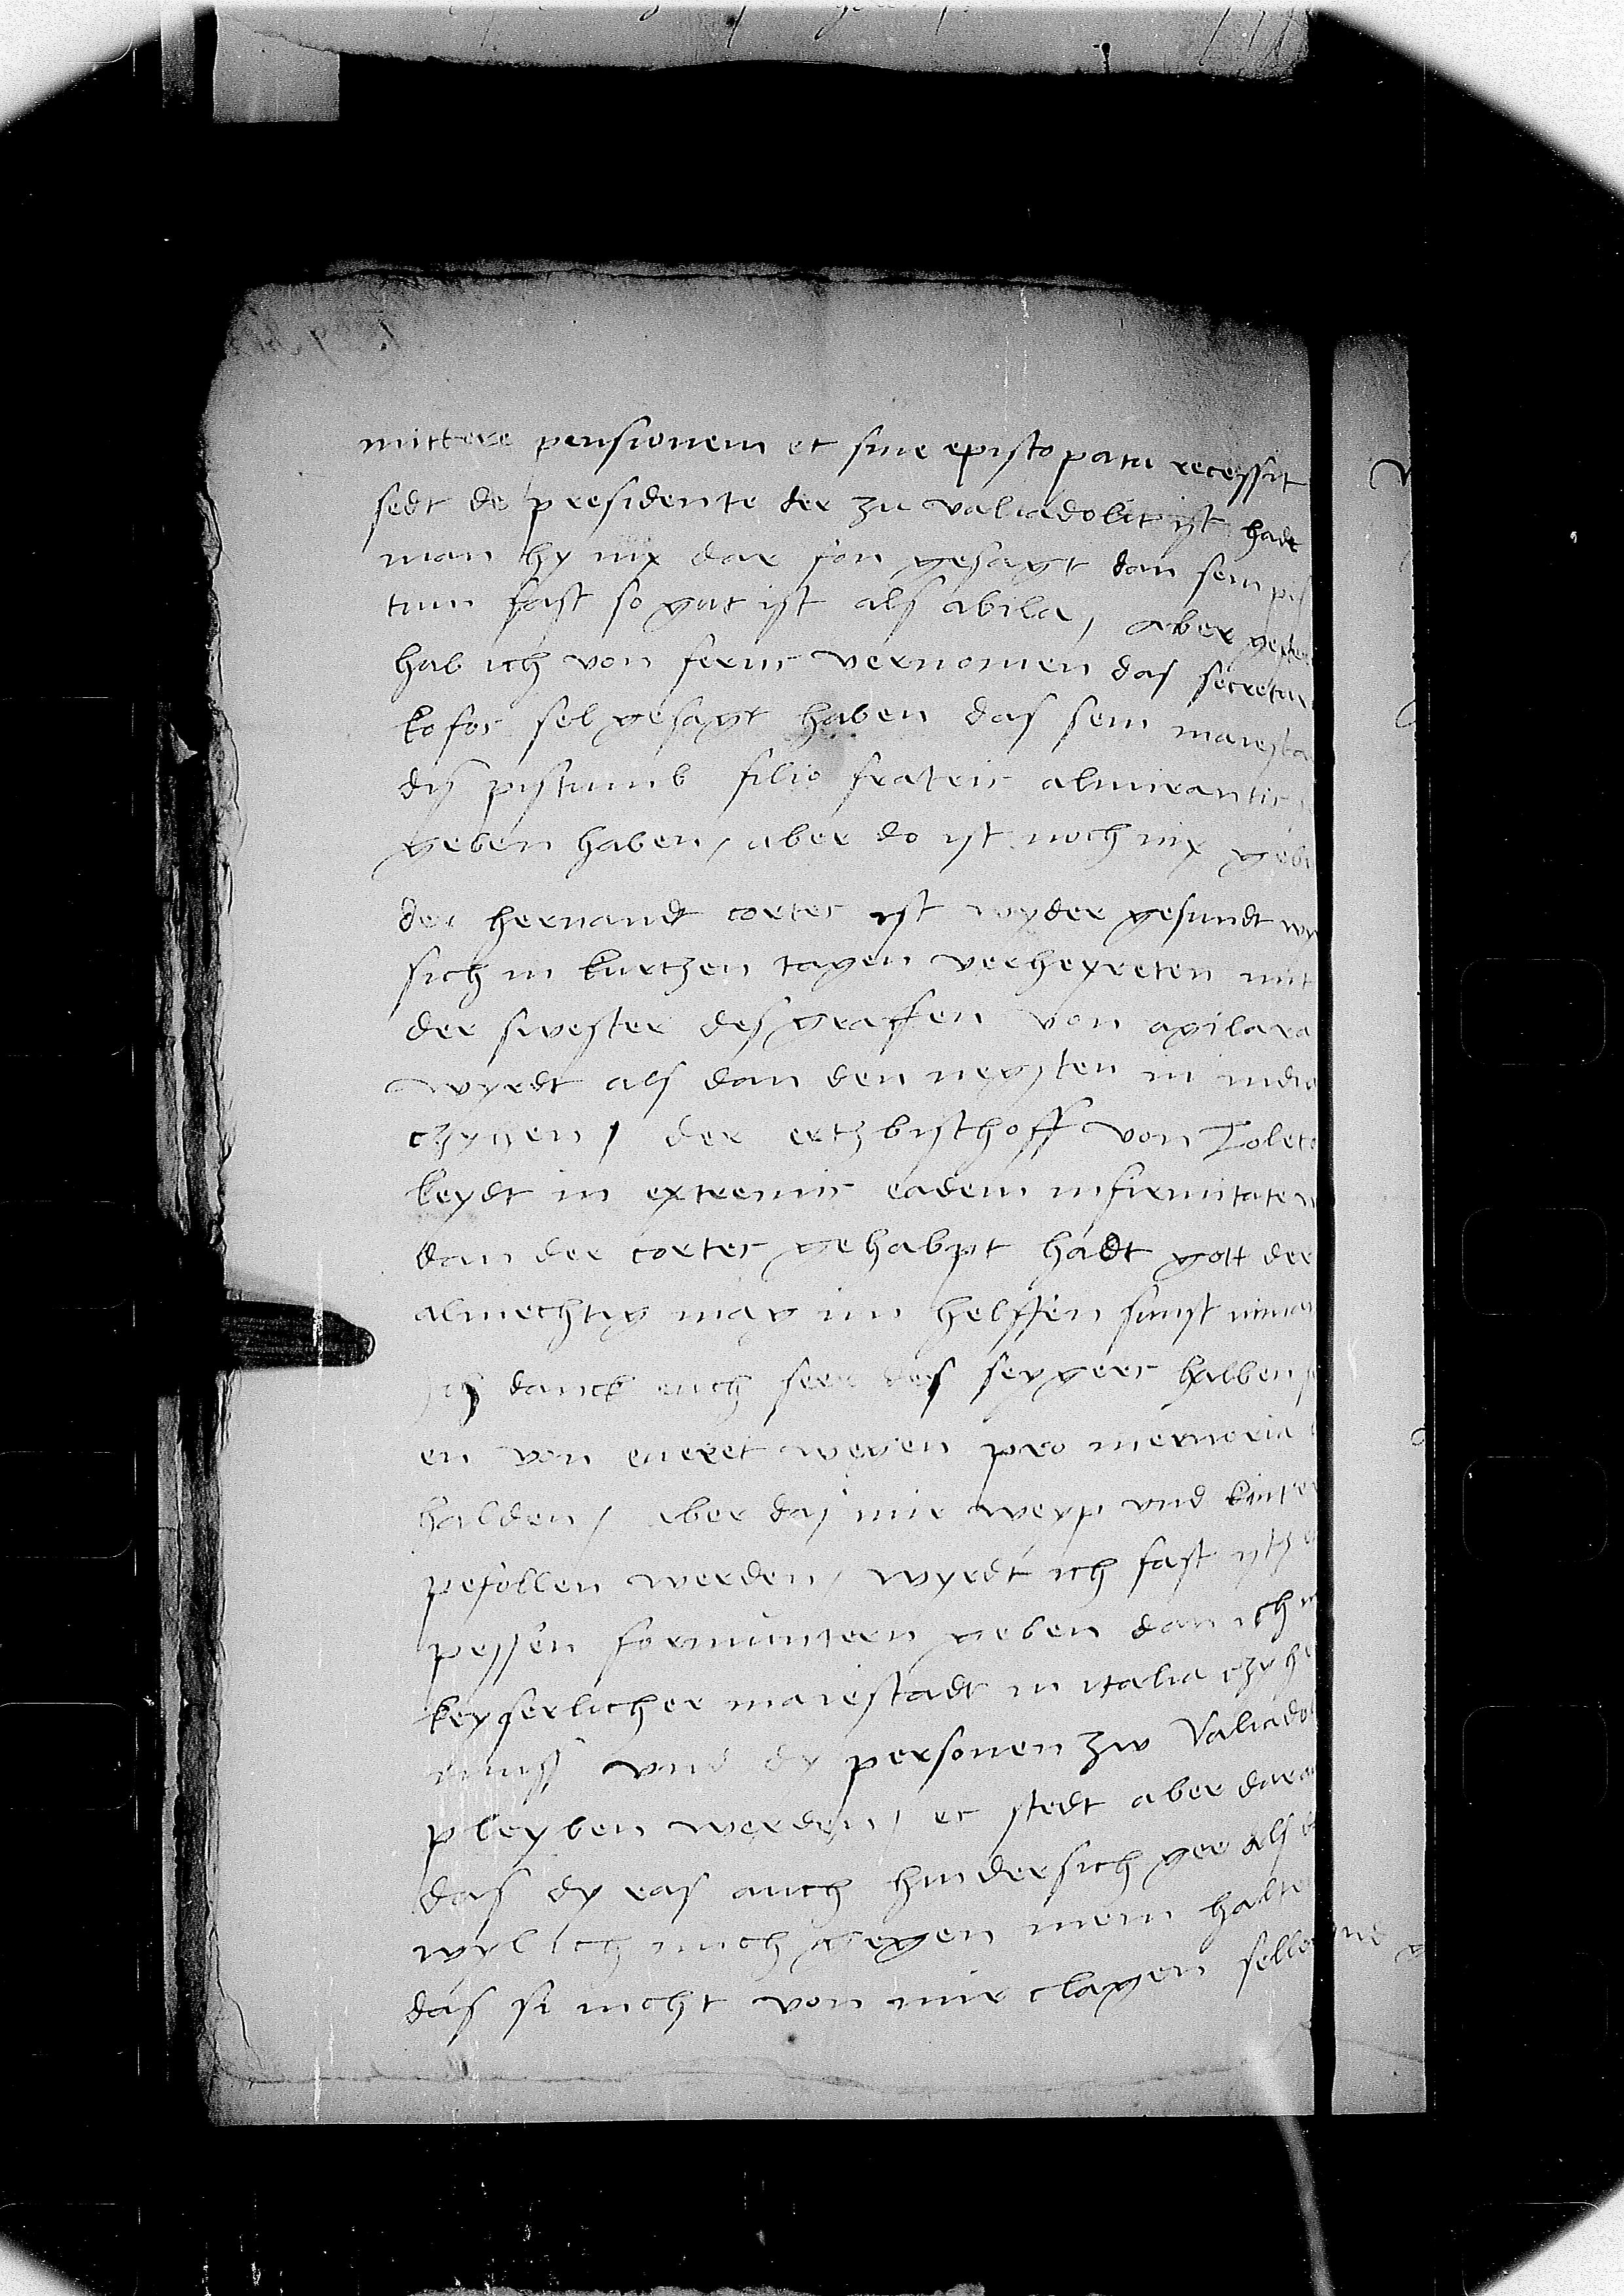 mittere pensionem et sine epistopatu recessit
sedt de presidente der zu valiadolit ist hadt
man hy nix dar fon gesagt dan sein pis
tum fast so gut ist als abila, aber
hab ich von ferns vernomen das
kofos sol gesagt haben das sein
dis pistumb filio fratris almirantis
geben haben, aber do ist noch nix
der hernandt cortes ist wyder gesundt
sich in kurtzen tagen verheyreten mit
der swester des graffen von agilara
wyrdt als dan den negsten in
czyhen, der ertzbisthoff von
leydt in extremis eadem infirmitate
dan der cortes gehabpt hadt gott der
almechtig mag im helffen sunst
ich danck euch seer des seygers halben
en von eueret wegen pro memoria
halden, aber das mir weyp und
pefollen werden, wyrdt ich fast
pessen formuntern geben dan ich
keyserlicher maiestadt in italia
mus und dy personen zw
pleyben werden, es stedt aber
das dy ras auch hindersich gee als
wyl ich mich gegen inen
das si nicht von mir clagen